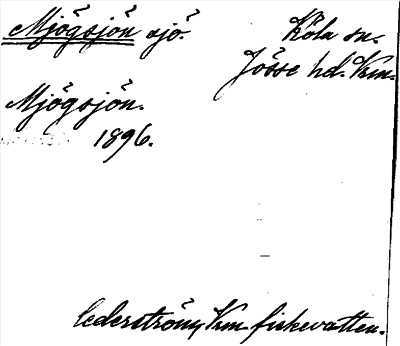 Mjögsjön sjö.
Köla sn.
Jösse hd. Vrm.
Mjögsjön.
1896.
Cederström, Vrm. fiskevatten.